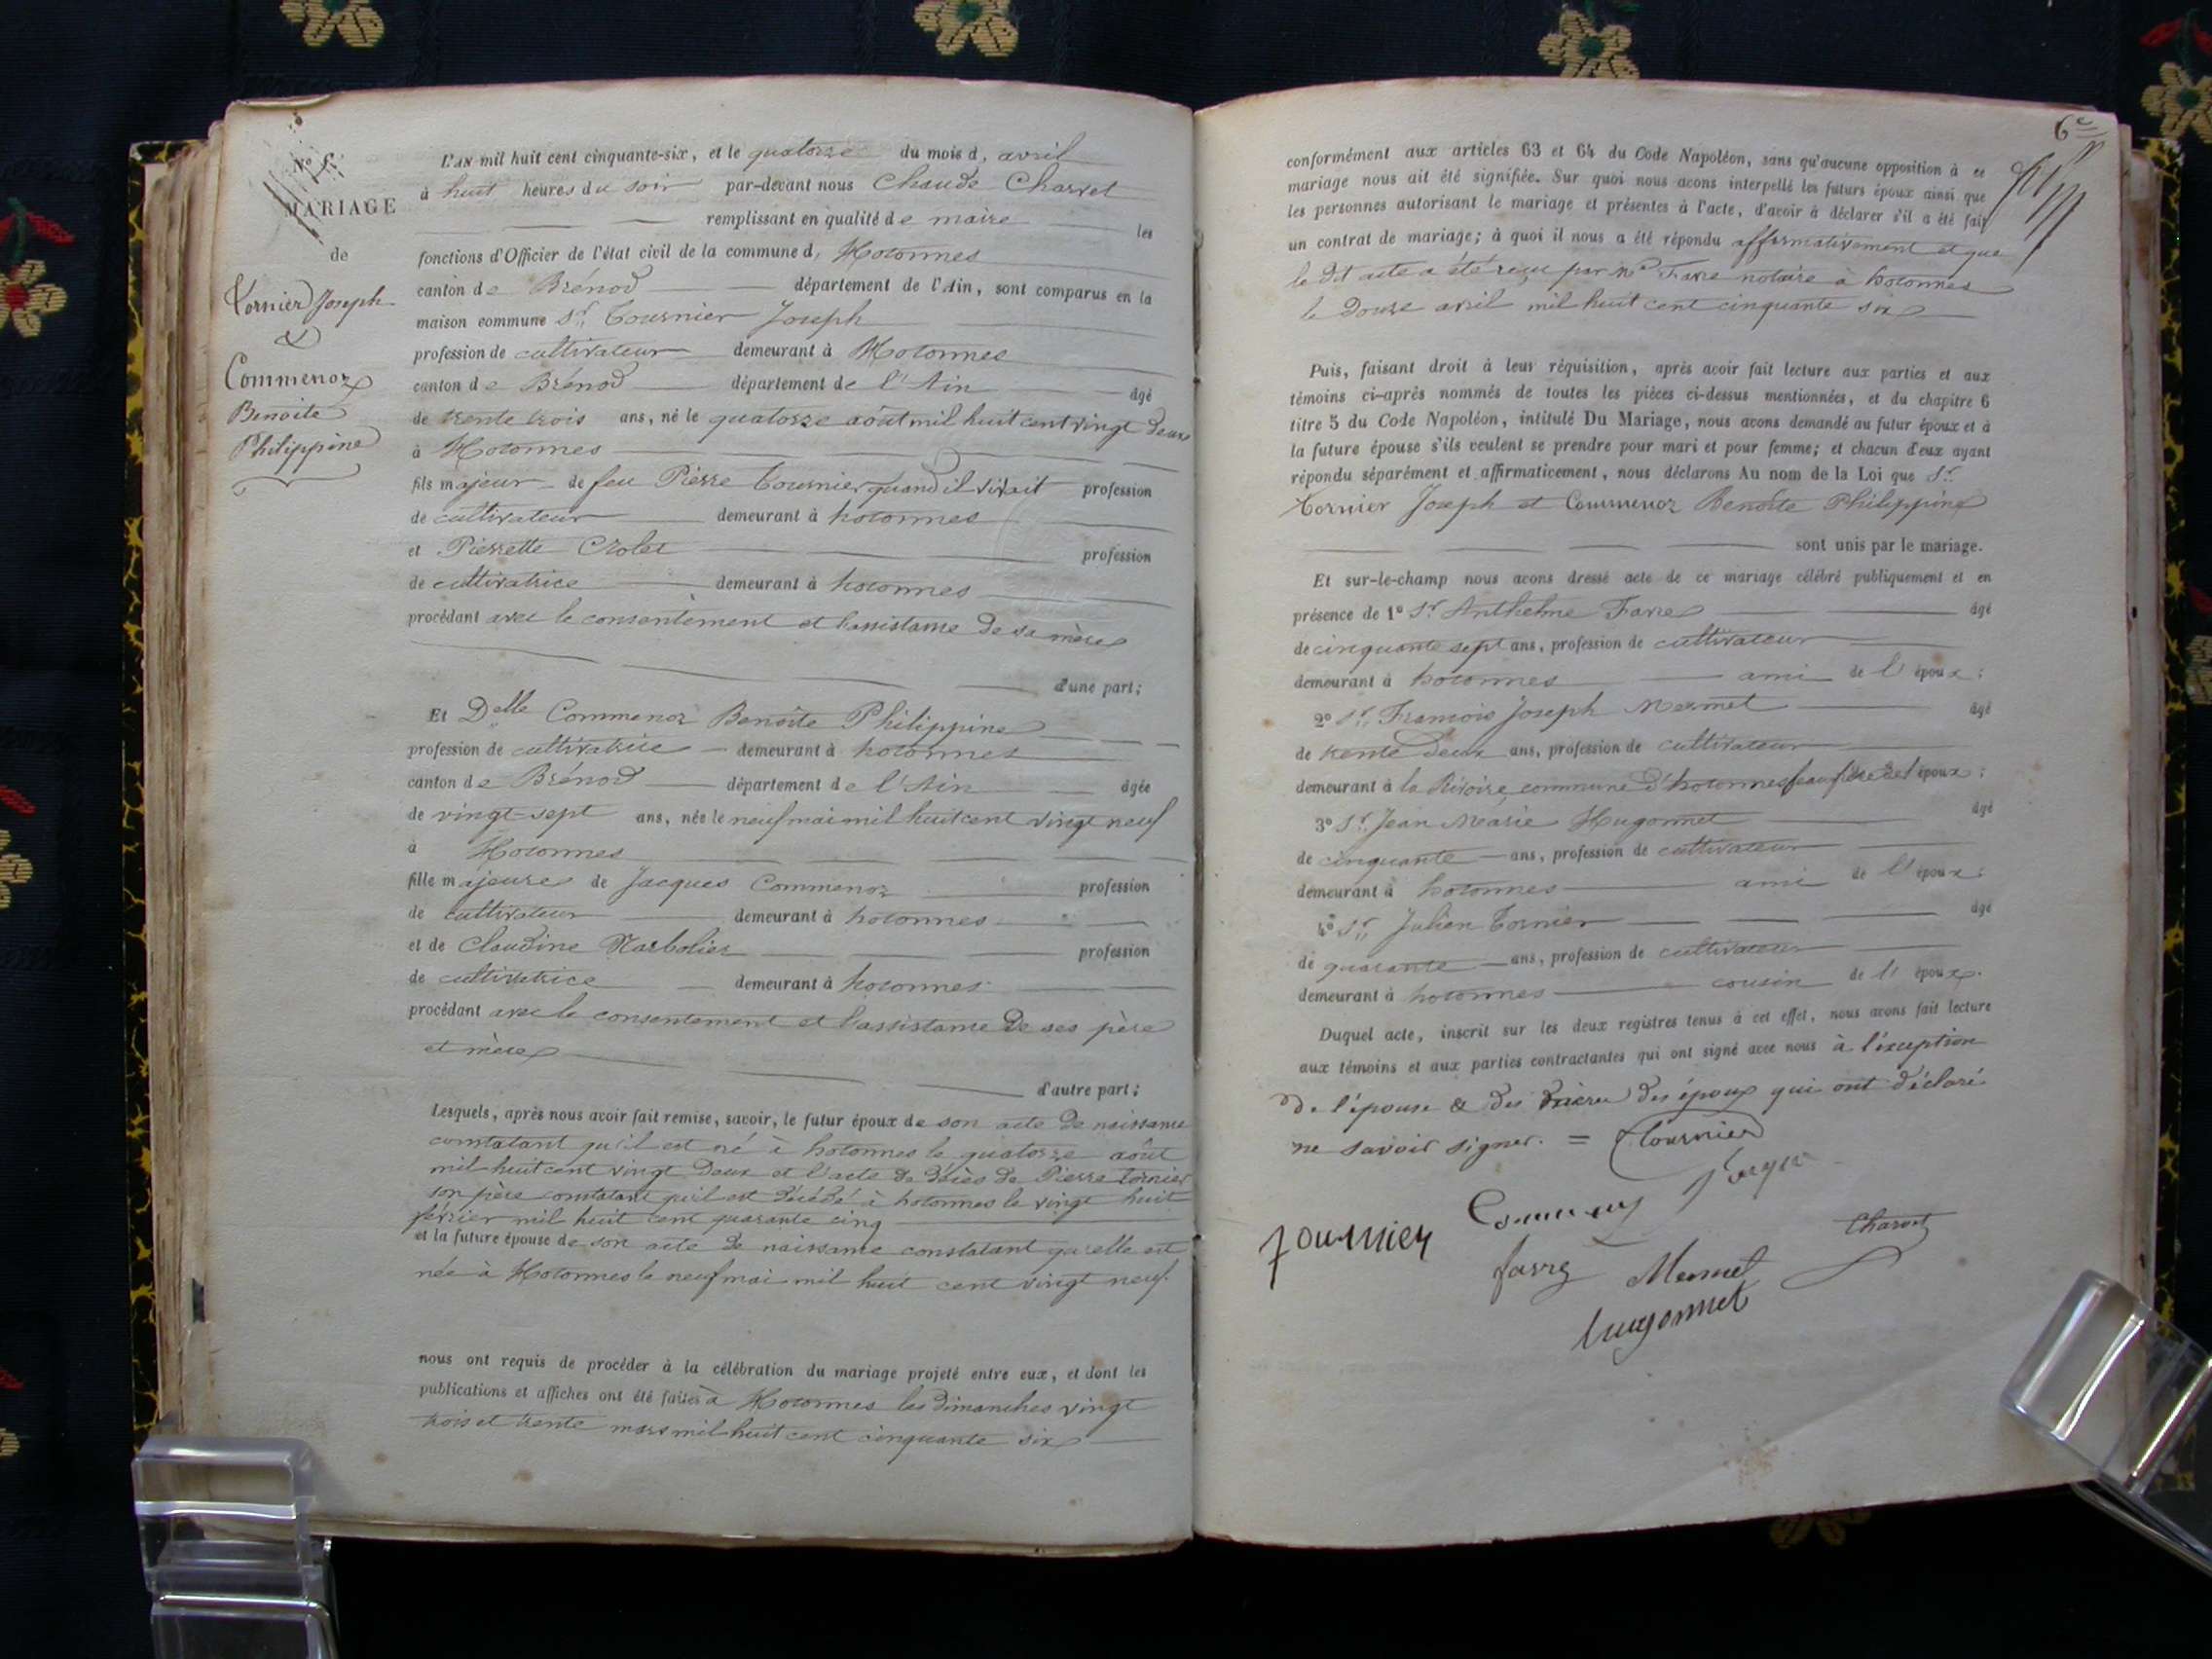 N° 5.
MARIAGE
de
Tornier Joseph
&
Commenoz
Benoite
Philippine
L'AN mil huit cent cinquante-six, et le quatorze du mois d, avril
à huit heures du soir par-devant nous Claude Charvet
remplissant en qualité de maire les
fonctions d'Officier de l'état civil de la commune d, Hotonnes
canton de Brénod département de l'Ain, sont comparus en la
maison commune Sr. Tournier Joseph
profession de cultivateur demeurant à Hotonnes
canton de Brénod département de l'Ain âgé
de trente trois ans, né le quatorze août mil huit cent vingt deux
à Hotonnes
fils majeur de feu Pierre Tournier quand il vivait profession
de cultivateur demeurant à hotonnes
et Pierrette Crolet profession
de cultivatrice demeurant à hotonnes
procédant avec le consentement et l'assistance de sa mère
d'une part;
Et Delle Commenoz Benoite Philippine
profession de cultivatrice demeurant à hotonnes
canton de Brénod département de l'Ain âgée
de vingt-sept ans, née le neuf mai mil huit cent vingt neuf
à Hotonnes
fille majeure de Jacques Commenoz profession
de cultivateur demeurant à hotonnes
et de Claudine Narbolier profession
de cultivatrice demeurant à hotonnes
procédant avec le consentement et l'assistance de ses père
et mère
d'autre part;
Lesquels, après nous avoir fait remise, savoir, le futur époux de son acte de naissance
constatant qu'il est né à hotonnes le quatorze août
mil huit cent vingt deux et l'acte de décès de Pierre Tornier
son père constatant qu'il est décédé à hotonnes le vingt huit
février mil huit cent quarante cinq
et la future épouse de son acte de naissance constatant qu'elle est
née à Hotonnes le neuf mai mil huit cent vingt neuf.
nous ont requis de procéder à la célébration du mariage projeté entre eux, et dont les
publications et affiches ont été faites à Hotonnes les dimanches vingt
trois et trente mars mil huit cent cinquante six
6e
conformément aux articles 63 et 64 du Code Napoléon, sans qu'aucune opposition à ce
mariage nous ait été signifiée. Sur quoi nous avons interpellé les futurs époux ainsi que
les personnes autorisant le mariage et présentes à l'acte, d'avoir à déclarer s'il a été fait
un contrat de mariage; à quoi il nous a été répondu affirmativement et que
le dit acte a été reçu par Me Favre notaire à hotonnes
le douze avril mil huit cent cinquante six
Puis, faisant droit à leur réquisition, après avoir fait lecture aux parties et aux
témoins ci-après nommés de toutes les pièces ci-dessus mentionnées, et du chapitre 6
titre 5 du Code Napoléon, intitulé Du Mariage, nous avons demandé au futur époux et à
la future épouse s'ils veulent se prendre pour mari et pour femme; et chacun d'eux ayant
répondu séparément et affirmativement, nous déclarons Au nom de la Loi que Sr.
Tornier Joseph et Commenoz Benoite Philippine
sont unis par le mariage.
Et sur-le-champ nous avons dressé acte de ce mariage célébré publiquement et en
présence de 1° Sr. Anthelme Favre âgé
de cinquante sept ans, profession de cultivateur
demeurant à hotonnes ami de l'époux;
2° Sr. François Joseph Mermet âgé
de trente deux ans, profession de cultivateur
demeurant à la Rivoire commune d'hotonnes beau frère de l'époux;
3° Sr. Jean Marie Hugonnet âgé
de cinquante ans, profession de cultivateur
demeurant à hotonnes ami de l'époux;
4° Sr. Julien Tornier âgé
de quarante ans, profession de cultivateur
demeurant à hotonnes cousin de l'époux.
Duquel acte, inscrit sur les deux registres tenus à cet effet, nous avons fait lecture
aux témoins et aux parties contractantes qui ont signé avec nous à l'exception
de l'épouse & des mères des époux qui ont déclaré
ne savoir signer. = Tournier
Commenoz
Tournier
Charvet
favre Mermet
hugonnet